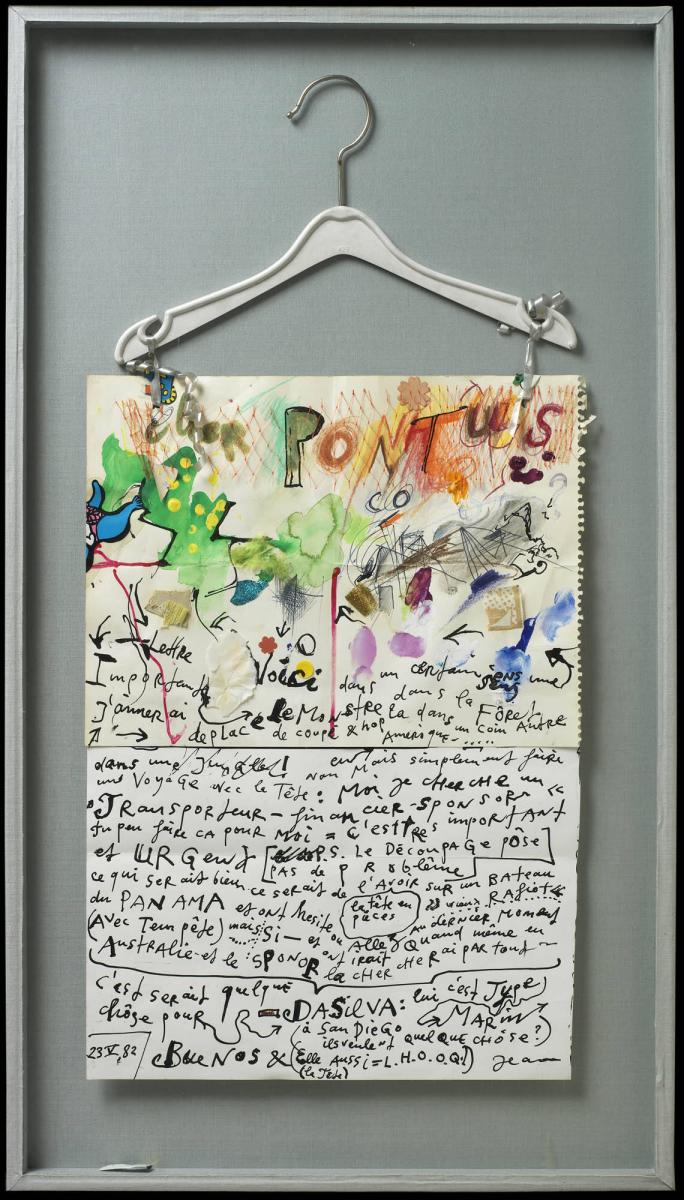 cher PONTUS
Lettre
Importante Voici dans un certain sens une
J'aimerai déplacé le Monstre la dans la Fôret
de coupé & hop dans un coin Autre
Amerique.....
dans une Jungle! en Mais simplement faire
une Voyage avec le Tête: Moi je cherche un
Transporteur-financier-SPONSOR
tu peu faire ça pour Moi = C'est très important
et URGent [P.S. Le Découpage pôse
pas de problême]
ce qui serait bien ce serait de l'avoir sur un Bateau
du PANAMA et ont hesite (la tête en pièces) vieux Rafiot
(Avec Tempête) mais Si — et ou Allez Au dernier Moment
Quand même en
Australie et le SPONOR ont irait
la chercherai partout
c'est serait quelque
chôse pour DASILVA: lui c'est Type MARIN
à San Diego
ils veulent quelque chose?
23 V, 82 Buenos & (Elle aussi = L.H.O.O.Q!) Jean
(la Tête)